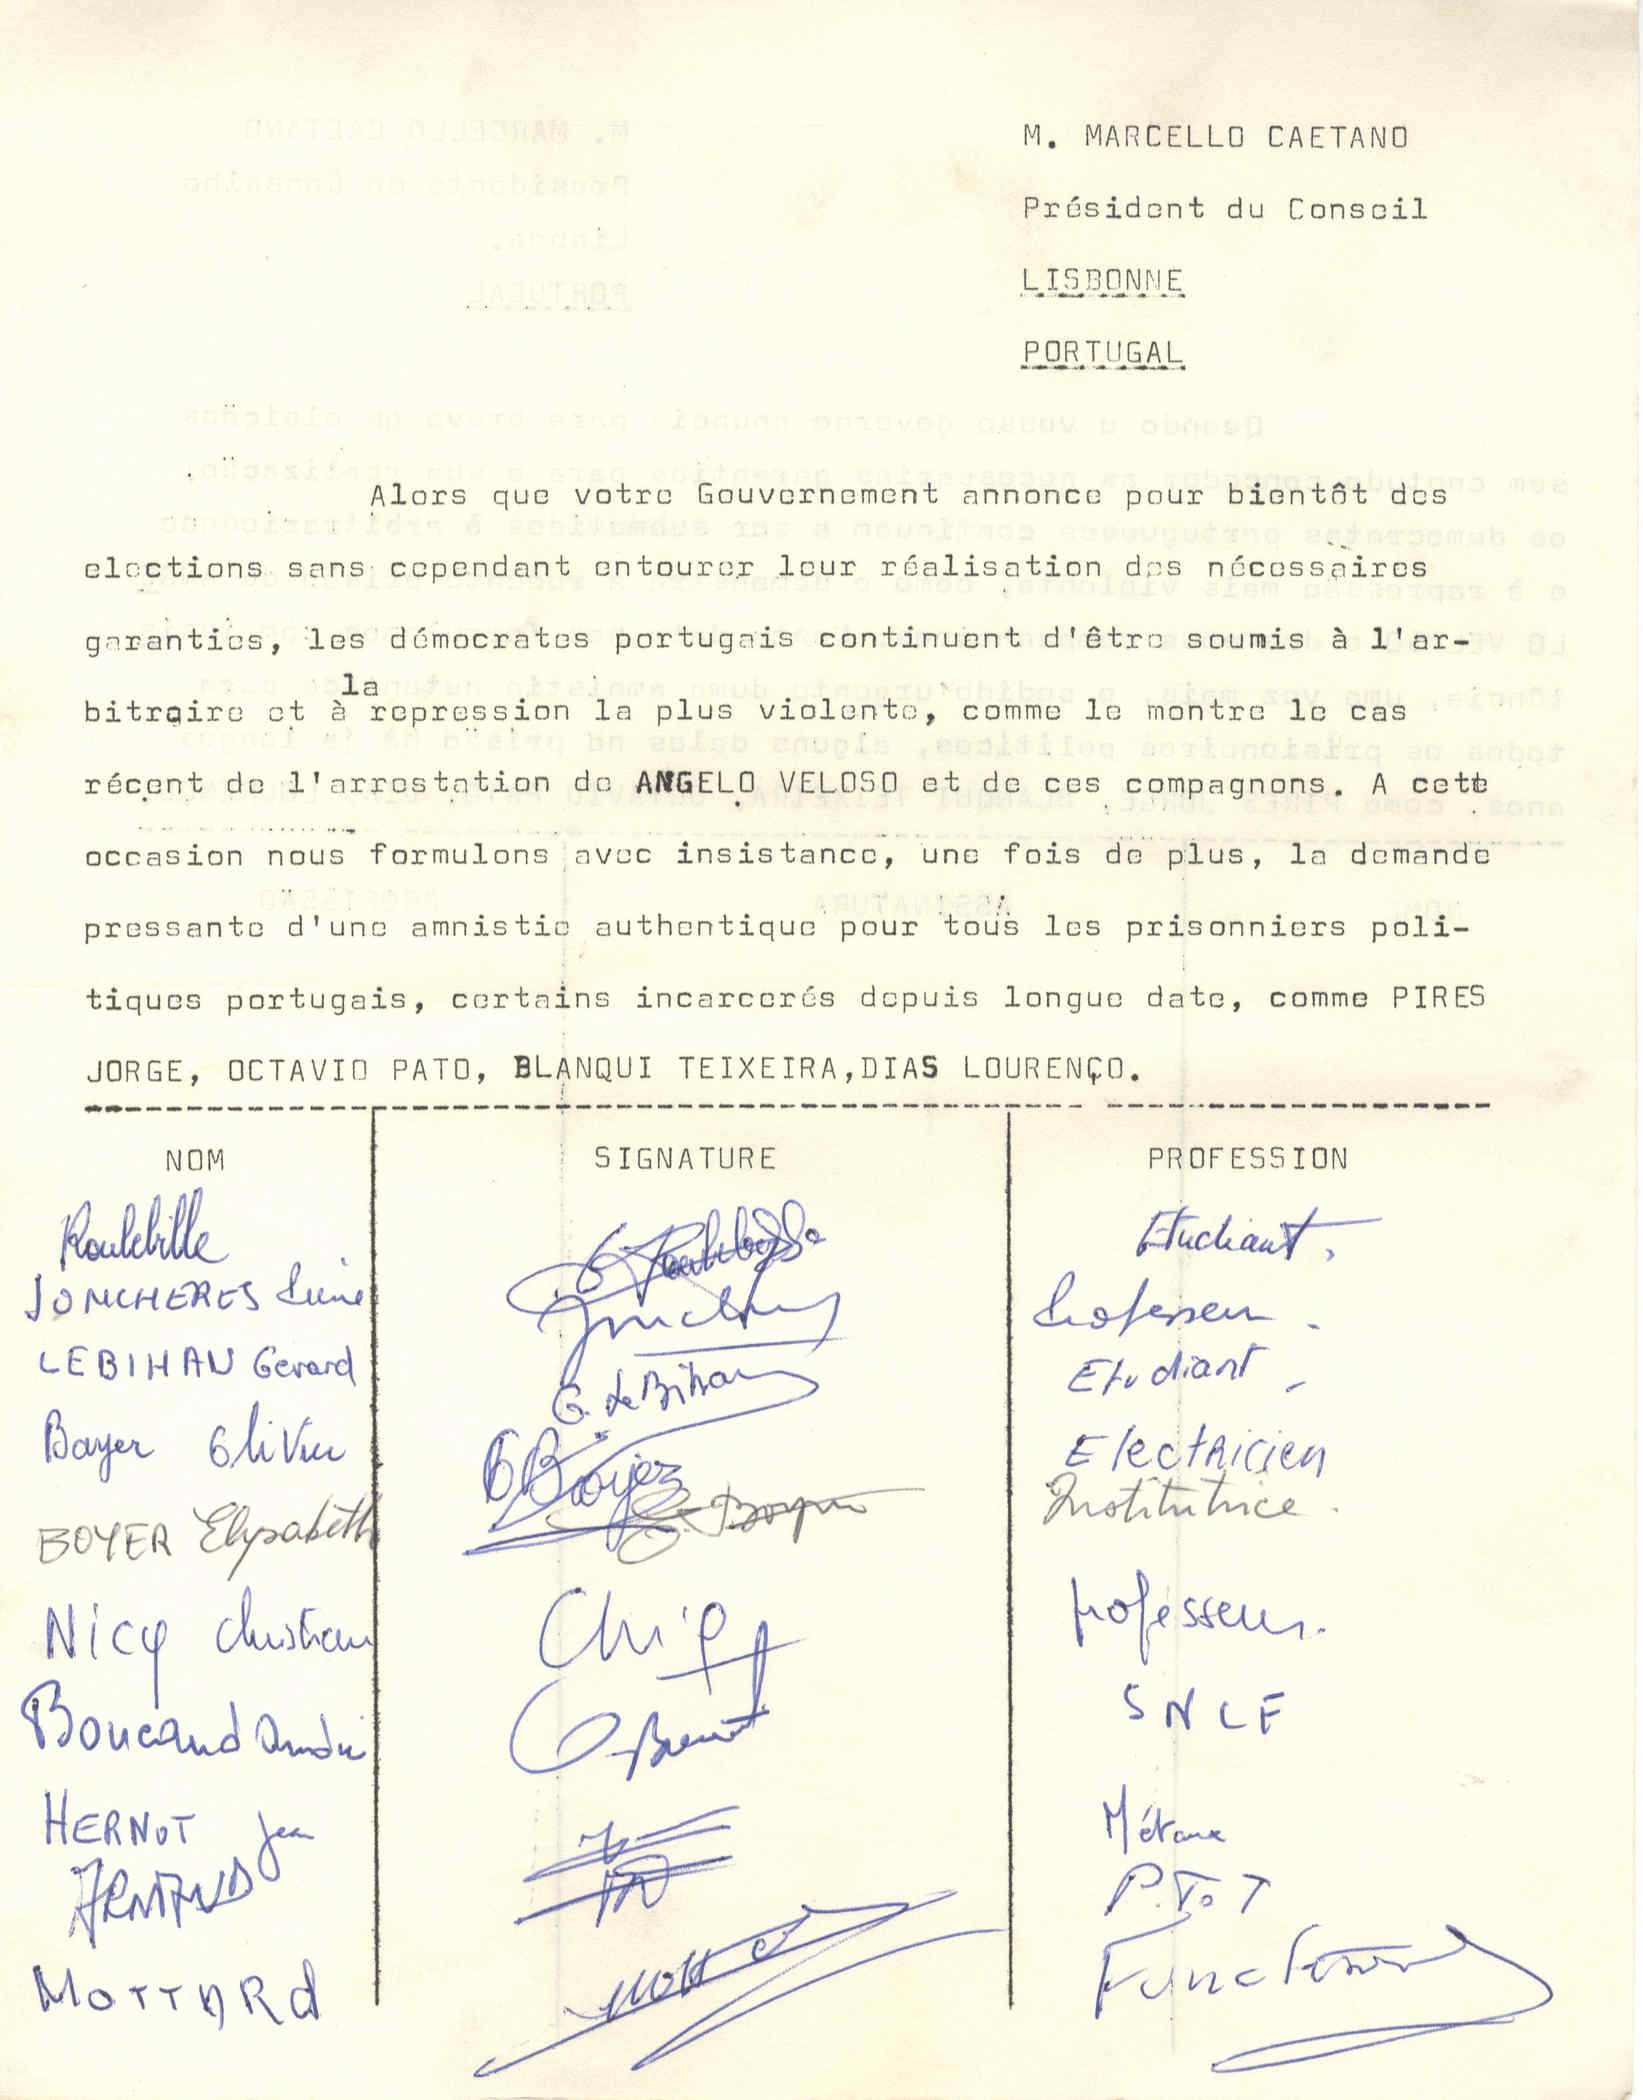 M. MARCELLO CAETANO
Président du Conseil
LISBONNE
PORTUGAL
Alors que votre Gouvernement annonce pour bientôt des
elections sans cependant entourer leur réalisation des nécessaires
garanties, les démocrates portugais continuent d'être soumis à l'ar-
la
bitraire et à repression la plus violente, comme le montre le cas
récent de l'arrestation de ANGELO VELOSO et de ces compagnons. A cette
occasion nous formulons avec insistance, une fois de plus, la demande
pressante d'une amnistie authentique pour tous les prisonniers poli-
tiques portugais, certains incarcerés depuis longue date, comme PIRES
JORGE, OCTAVIO PATO, BLANQUI TEIXEIRA, DIAS LOURENÇO.
NOM SIGNATURE PROFESSION
Etudiant.
JONCHERES Professeur.
LEBIHAN Gerard G. Le Bihan Etudiant
Boyer Olivier O Boyer Electricien
BOYER Elysabeth E. Boyer Institutrice.
Nicq Christian professeur.
Boucaud André SNCF
HERNOT Jean Métaux
ARMAND P.T.T
MOTTARd